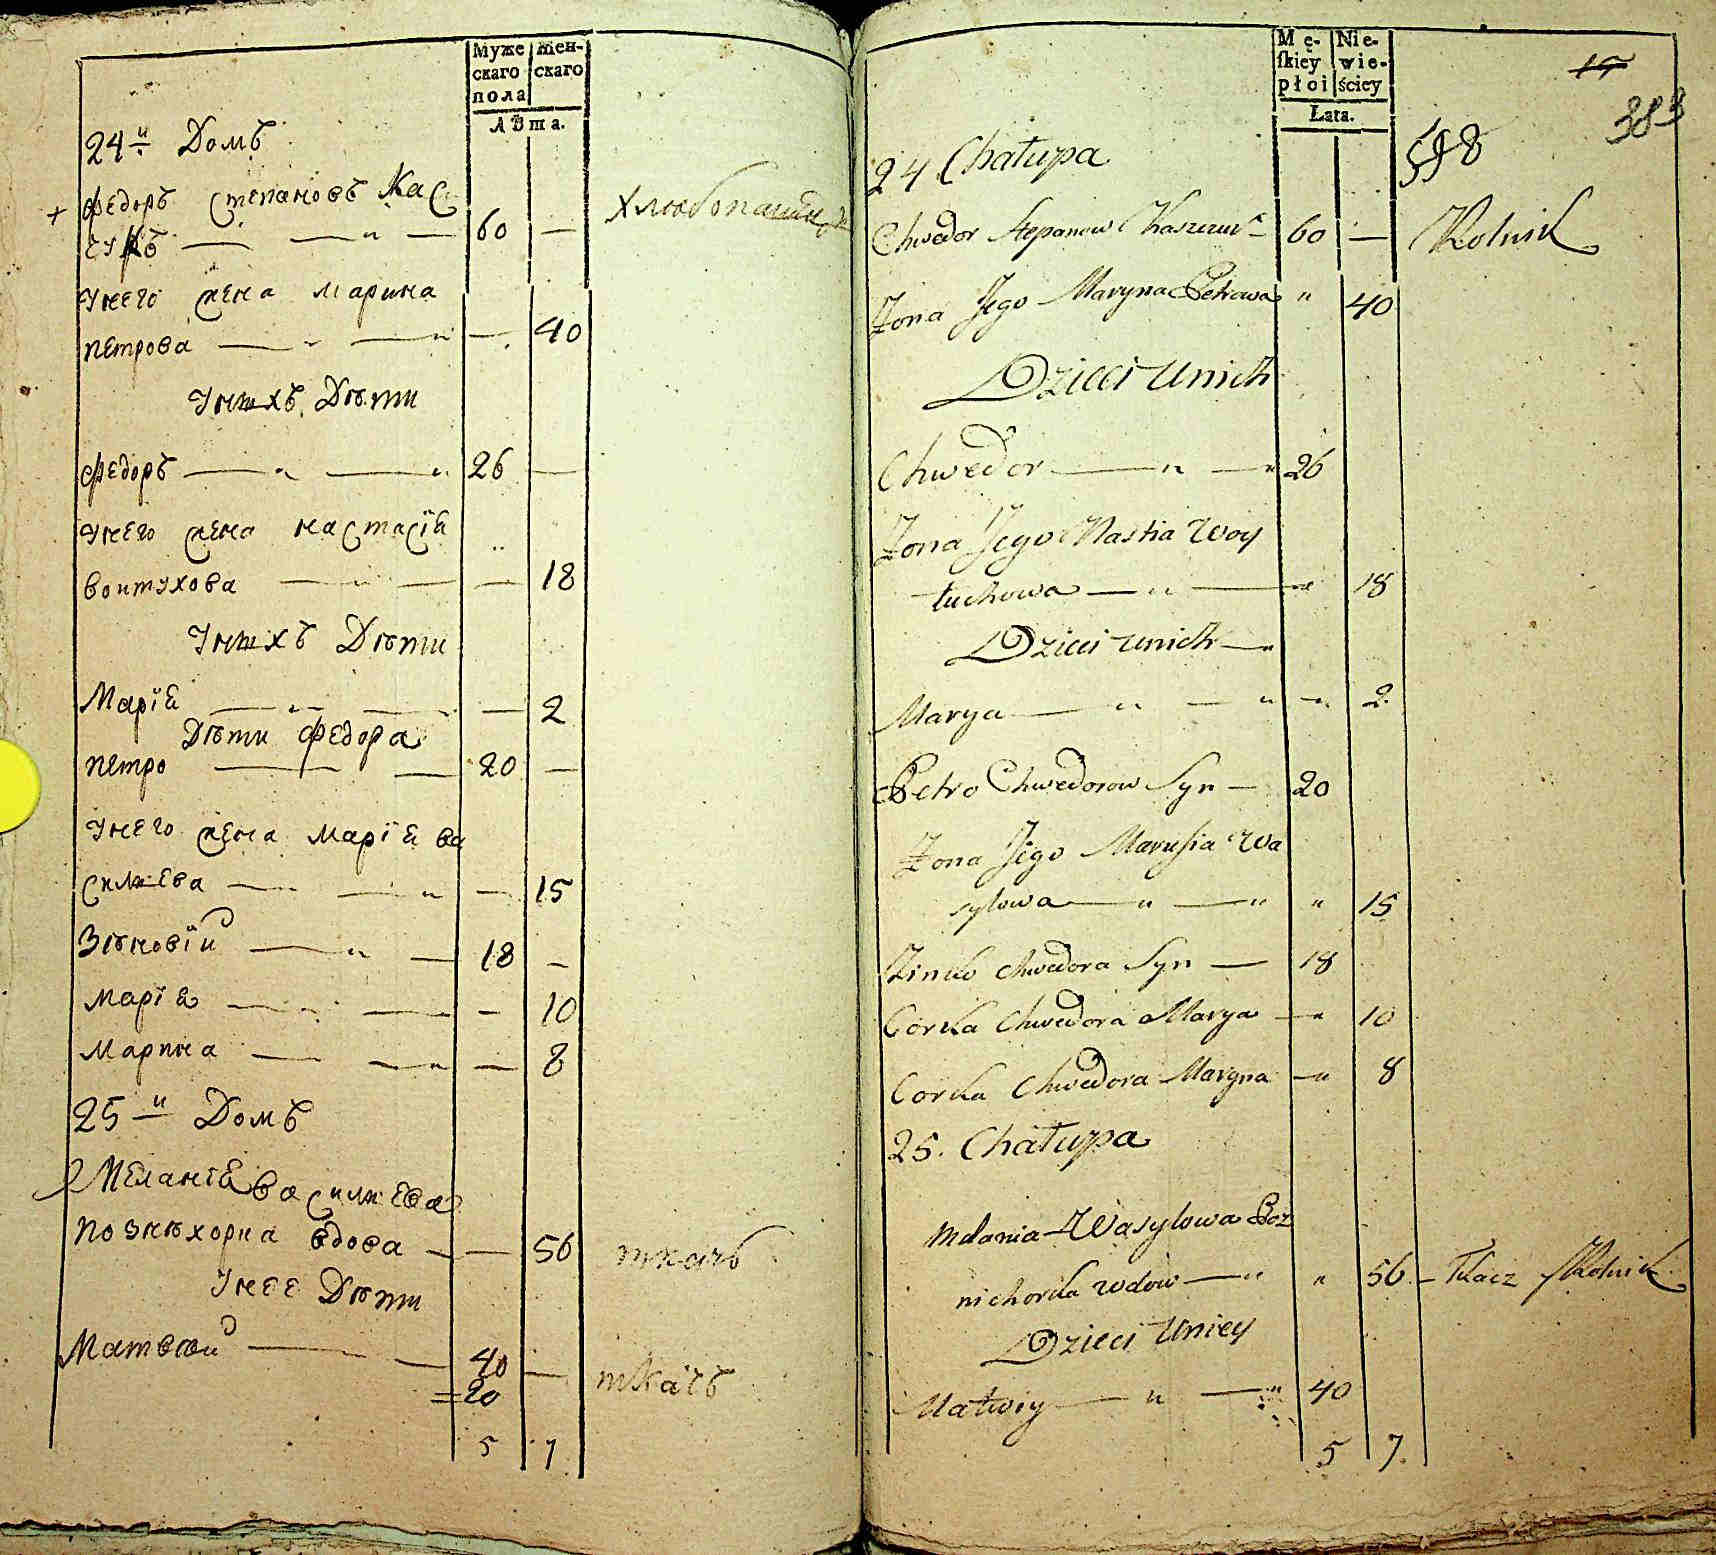 Муже
скаго
пола
Жен-
скаго
Лѣта.
24й Домъ
Федоръ Степановъ Кас
чукъ — — „ — 60 —
Унего жена Марина
Петрова — „ — „ — 40
Унихъ Дѣти
Федоръ — „ — „ 26 —
Унего жена Настасія
Воитухова — „ — — 18
Унихъ Дѣти
Марія — „ — — 2
Дѣти Федора
Петро — — 20 —
Унего жена Марія Ва
силиева — — „ — 15
Зѣновіи — „ — 18 —
Марія — „ — — 10
Марина — — „ — 8
25й Домъ
Меланія Василиева
Познѣхорка вдова — — 56 ткачъ
Унее Дѣти
Матвѣи — — 40 — ткачъ
=20
5 7
Хлѣбопашецъ
Mę-
ſkiey
płoi
Nie-
wie-
ściey
Łata.
15
383
598
24 Chałupa
Chwedor Stepanow Kaszczuk 60 — Rolnik
Żona Jego Maryna Petrowa „ 40
Dzieci Unich
Chwedor — „ — „ 26
Żona Jego Nastia Woy
tuchowa — „ — „ 18
Dzieci unich — „
Marya — „ — „ — „ 2
Petro Chwedorow Syn — 20
Żona Jego Marusia Wa
sylowa — „ — „ „ 15
Zinko Chwedora Syn — 18
Corka Chwedora Marya — „ 10
Corka Chwedora Maryna — „ 8
25. Chałupa
Melania Wasylowa Poz
nichorka wdow — „ „ 56 — Tkacz Rolnik
Dzieci Uniey
Matwiy — „ — „ 40
5 7